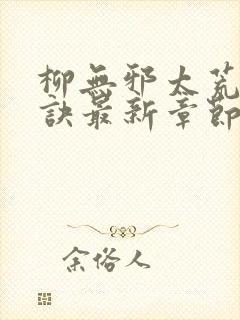 柳無邪太荒
訣最新章節
余俗人